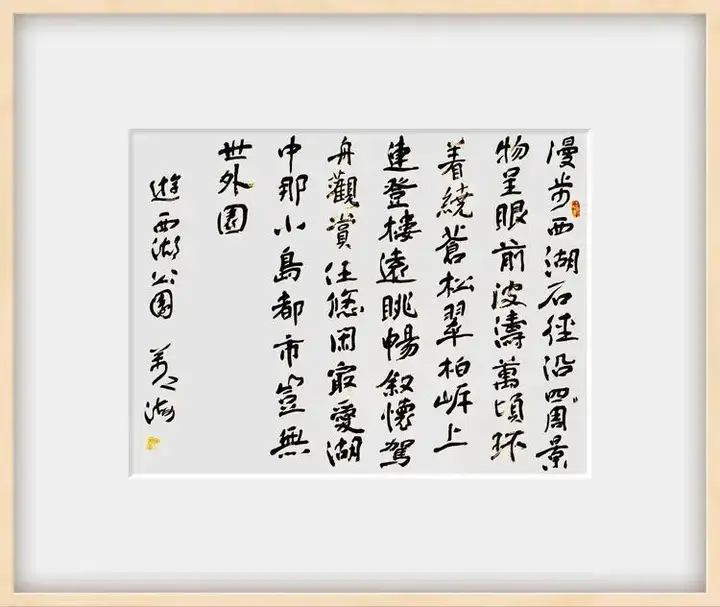 漫步西湖石徑沿四周景
物呈眼前波濤萬頃环
着繞蒼松翠柏岸上
連登樓遠眺暢叙懷駕
舟觀賞任悠閑寂愛湖
中那小島都市豈無
世外園
遊西湖公園